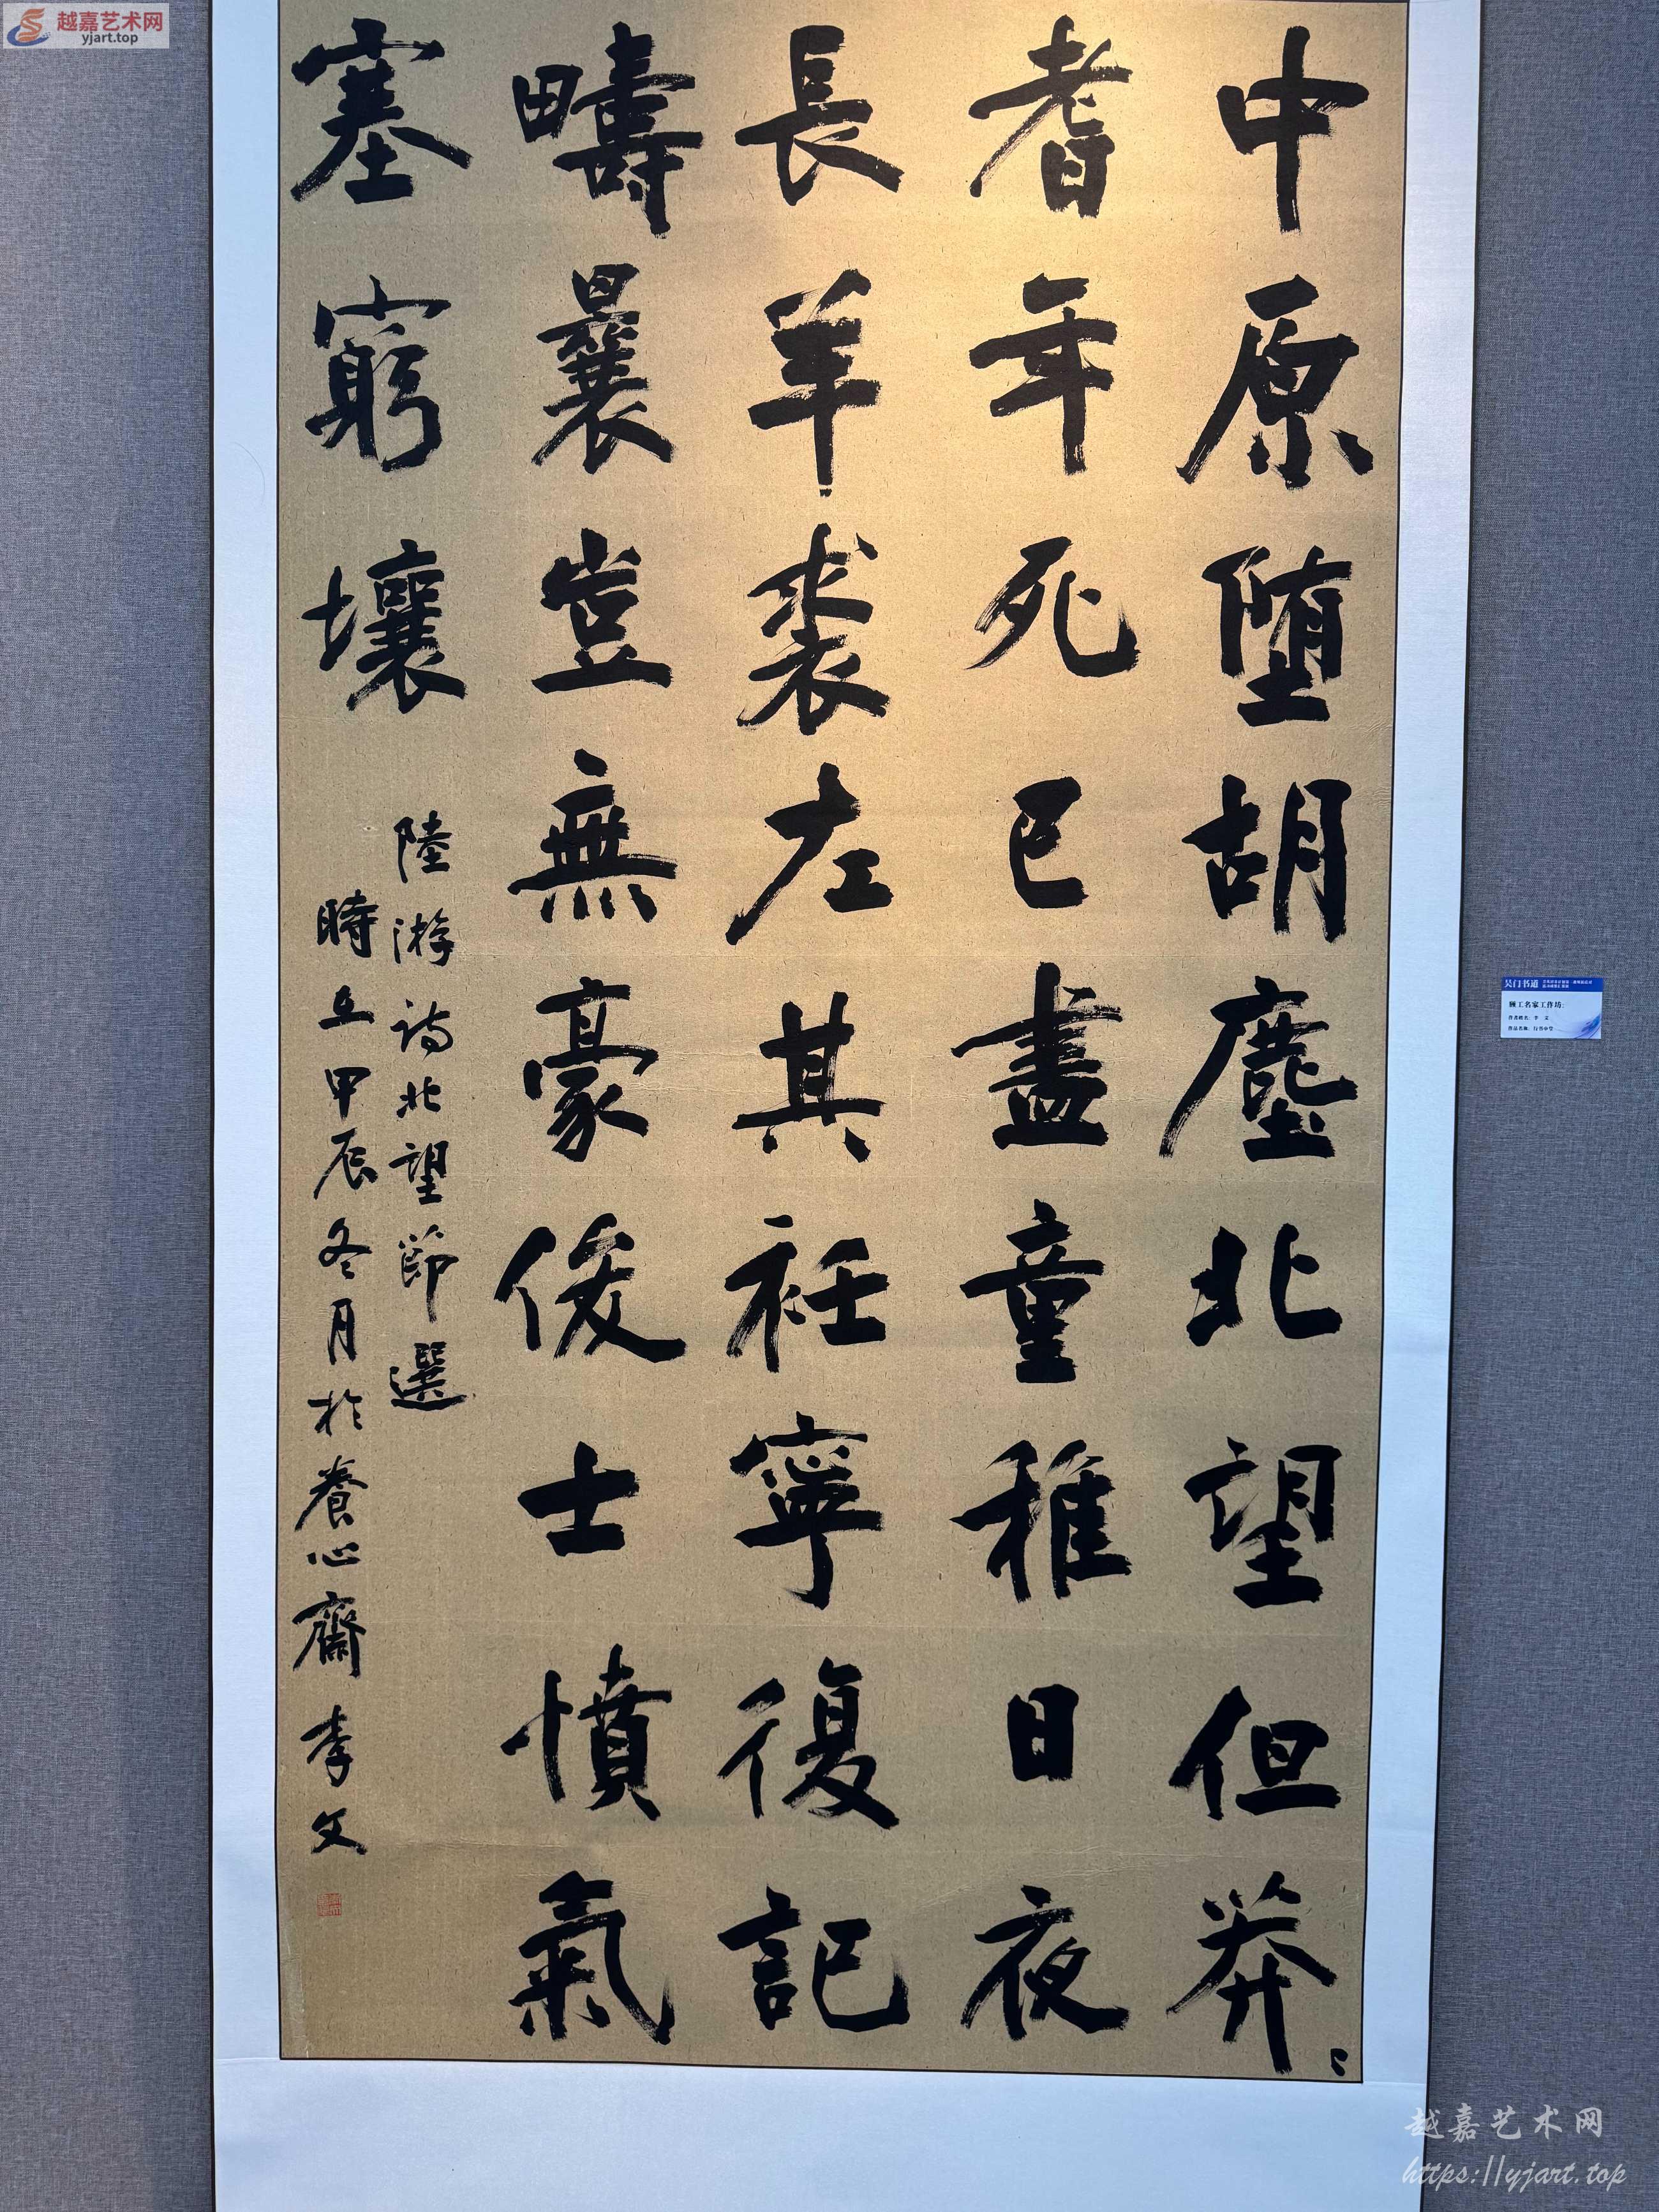 越嘉艺术网
yjart.top
中原墮胡塵北望但莽〻
耆年死已盡童稚日夜
長羊裘左其衽寧復記
疇曩豈無豪俊士憤氣
塞窮壤
陸游詩北望節選
時在甲辰冬月於養心齋李文
吴门书道
作者姓名：李 文
作品名称：行书中堂
越嘉艺术网
https://yjart.top